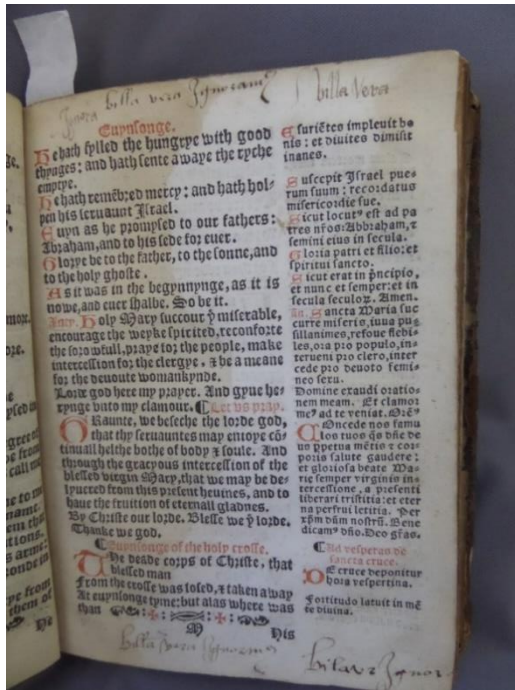 billa vera Ignoram
billa Vera
Euynsonge.
He hath fylled the hungrye with good
thynges: and hath sente awaye the ryche
emptye.
He hath remēbred mercy: and hath hol-
pen his seruaunt Israel.
Euyn as he promysed to our fathers:
Abraham, and to his sede for euer.
Glorye be to the father, to the sonne, and
to the holy ghoste.
As it was in the begynnynge, as it is
nowe, and euer shalbe. So be it.
Holy Mary succour ye miserable,
encourage the weyke spirited, reconforte
the sorowfull, praye for the people, make
intercession for the clergye, & be a meane
for the deuoute womankynde.
Lorde god here my prayer. And gyue he-
rynge vnto my clamour. ¶ Let vs pray.
Graunte, we beseche the lorde god,
that thy seruauntes may enioye cō-
tinuall helthe bothe of body & soule. And
through the gracyous intercession of the
blessed virgin Mary, that we may be de-
lyuered from this present heuines, and to
haue the fruition of eternall gladnes.
By Christe our lorde. Blesse we ye lorde.
Thanke we god.
¶ Euynsonge of the holy crosse.
The deade corps of Christe, that
blessed man
From the crosse was losed, & taken away
At euynsonge tyme: but alas where was
than
M
His
Esuriētes impleuit bo
nis: et diuites dimisit
inanes.
Suscepit Israel pue-
rum suum: recordatus
misericordie sue.
Sicut locutꝰ est ad pa
tres nr̄os: Abraham, &
semini eius in secula.
Gloria patri et filio: et
spiritui sancto.
Sicut erat in p̄ncipio,
et nunc et semper: et in
secula seculoꝝ. Amen.
An. Sancta Maria suc
curre miseris, iuua pu-
sillanimes, refoue flebi-
les, ora pro populo, in-
terueni pro clero, inter
cede pro deuoto femi-
neo sexu.
Domine exaudi oratio-
nem meam. Et clamor
meꝰ ad te veniat. Orēꝰ
Concede nos famu
los tuos q̄s dn̄e de
us ꝑpetua mētis & cor-
poris salute gaudere:
et gloriosa beate Ma-
rie semper virginis in-
tercessione, a presenti
liberari tristitia: et eter
na perfrui letitia. Per
xp̄m dn̄m nostrū. Bene
dicamꝰ dn̄o. Deo gr̄as.
¶ Ad vesperas de
sancta cruce.
De cruce deponitur
hora vespertina.
Fortitudo latuit in mē
te diuina.
billa vera Ignoramus